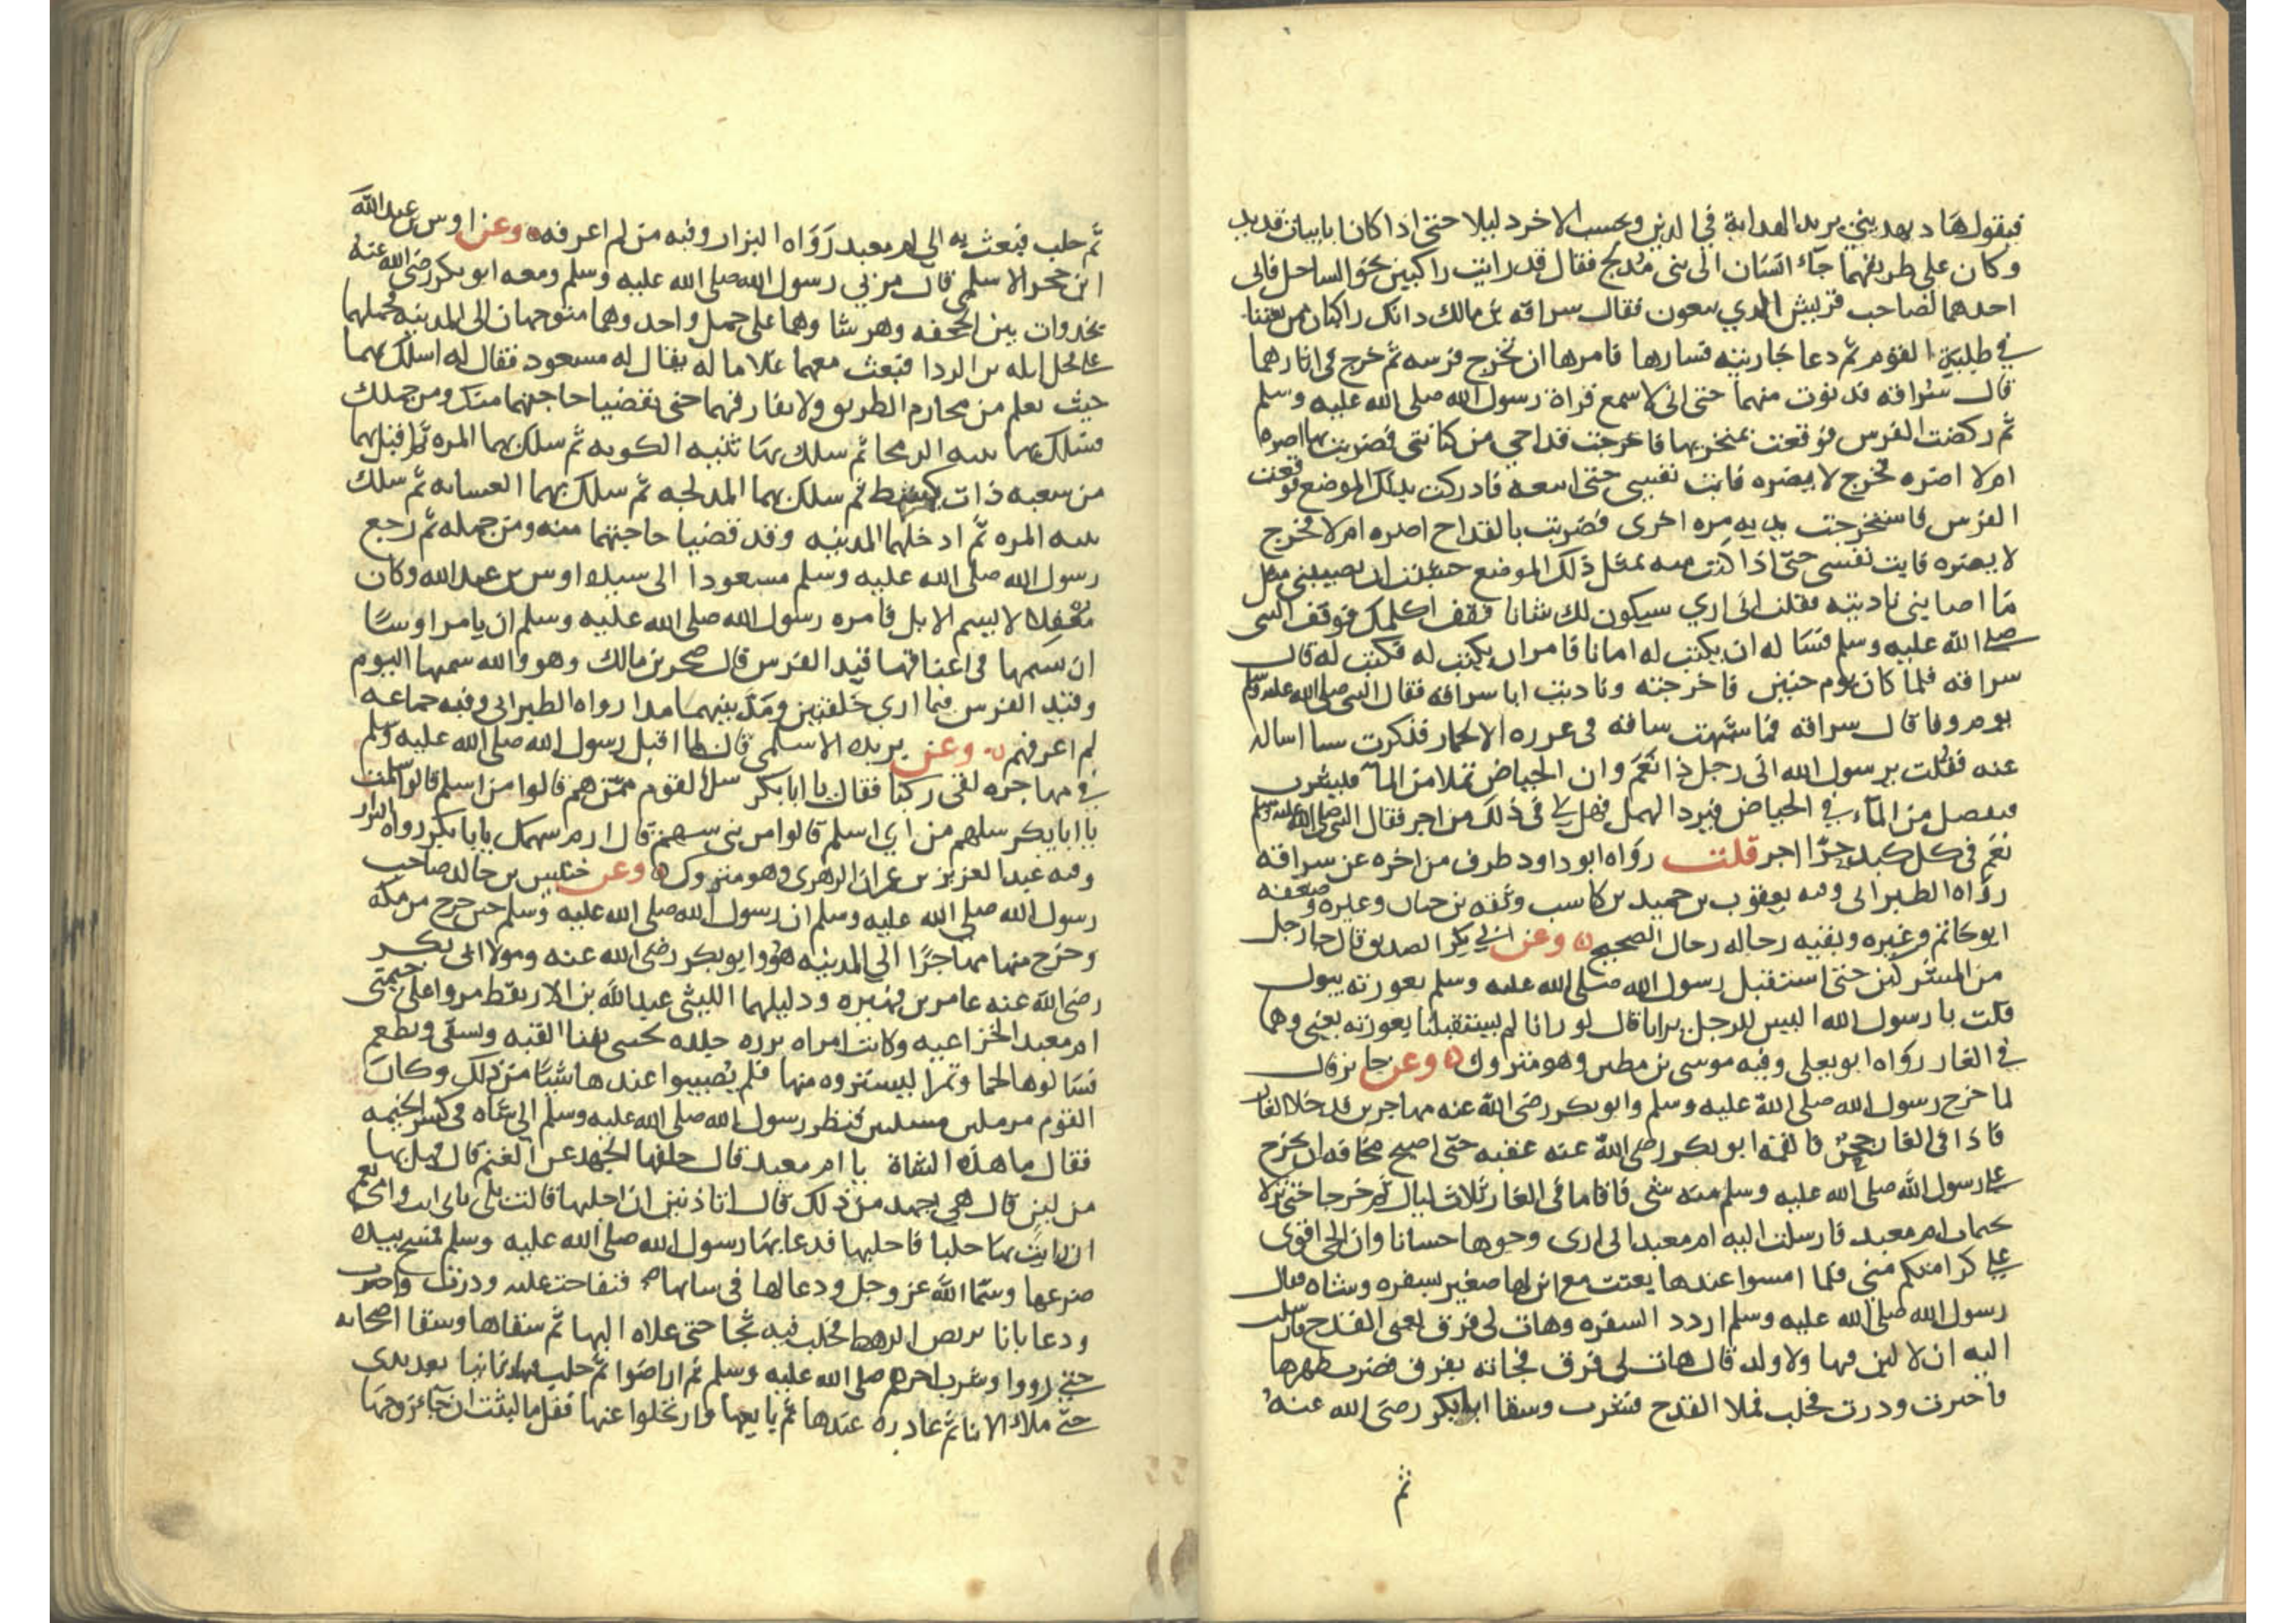 فيقول هاد يهديني يريد الهداية في الدين ويحسب الاخر دليلا حتى اذا كانا بابيات قديد
وكان على طريقهما جاء انسان الى بني مدلج فقال قد رايت راكبين نحو الساحل فاني
احدهما لصاحب قريش الذي تبغون فقال سراقة بن مالك ذانك راكبان ممن بعثنا
في طلبة القوم ثم دعا جاريته فسارها فامرها ان تخرج فرسه ثم خرج في اثارهما
قال سراقة فدنوت منهما حتى اني لاسمع قراة رسول الله صلى الله عليه وسلم
ثم ركضت الفرس فوقعت بمنخريها فاخرجت قداحي من كنانتي فضربت بها اضره
ام لا اضره فخرج لا يضره فابت نفسي حتى اتبعه فادركت بذلك الموضع فوقعت
الفرس فاستخرجت يديه مره اخرى فضربت بالقداح اضره ام لا فخرج
لا يضره فابت نفسي حتى اذا كنت منه بمثل ذلك الموضع خشيت ان يصيبني مثل
ما اصابني ناديته فقلت اني اري سيكون لك شانا فقف اكلمك فوقف النبي
صلى الله عليه وسلم فساله ان يكتب له امانا فامر ان يكتب له فكتب له قال
سراقة فلما كان يوم حنين فاخرجته وناديت انا سراقة فقال النبي صلى الله عليه وسلم
يوم وفا قال سراقة فما شبهت ساقه في غرزه الا لجمار فذكرت شيا اساله
عنه فقلت يرسول الله اني رجل ذا نعم وان الحياض تملا من الماء فيشرب
فيفضل من الماء في الحياض فيرد الهمل فهل لي في ذلك من اجر فقال النبي صلى الله عليه وسلم
نعم في كل كبد حرا اجر قلت رواه ابو داود طرف من اخره عن سراقة
رواه الطبراني وفيه يعقوب بن حميد بن كاسب وثقه بن حبان وغيره وضعفه
ابو حاتم وغيره وبقيه رجاله رجال الصحيح وعن ابي بكر الصديق قال جا رجل
من المشركين حتى استقبل رسول الله صلى الله عليه وسلم بعورته يبول
قلت يا رسول الله اليس الرجل يرانا قال لو رانا لم يستقبلنا بعورته يعني وهما
في الغار رواه ابو يعلى وفيه موسى بن مطير وهو متروك وعن جابر قال
لما خرج رسول الله صلى الله عليه وسلم وابو بكر رضى الله عنه مهاجرين فدخلا الغار
فاذا في الغار جحر فالقمه ابو بكر رضى الله عنه عقبه حتى اصبح مخافة ان يخرج
على رسول الله صلى الله عليه وسلم منه شى فاقاما في الغار ثلاث ليال ثم خرجا حتى نزلا
بخيمات ام معبد فارسلت اليه ام معبد اني ارى وجوها حسانا وان الحي اقوى
على كرامتكم مني فلما امسوا عندها بعثت مع ابن لها صغير بسفره وشاه فقال
رسول الله صلى الله عليه وسلم اردد السفره وهات لي فرق يعني القدح فارسلت
اليه ان لا لبن فيها ولا ولد قال هات لي فرق فجاته بفرق فضرب ظهرها
فاجترت ودرت فحلب فملا القدح فشرب وسقا ابا بكر رضى الله عنه
ثم
ثم حلب فبعث به الى ام معبد رواه البزار وفيه من لم اعرفه وعن اوس بن عبد الله
ابن حجر الاسلمي قال مر بي رسول الله صلى الله عليه وسلم ومعه ابو بكر رضى الله عنه
بخدوات بين الجحفه وهرشا وهما على جمل واحد وهما متوجهان الى المدينه فحملهما
على فحل ابله بن الردا فبعث معهما غلاما له يقال له مسعود فقال له اسلك بهما
حيث تعلم من محارم الطريق ولا تفارقهما حتى يقضيا حاجتهما منك ومن جملك
فسلك بهما ثنيه الرمحا ثم سلك بهما ثنيه الكوبه ثم سلك بهما المره ثم اقبل بهما
من شعبه ذات كشط ثم سلك بهما المدلجه ثم سلك بهما الغسانه ثم سلك
ثنيه المره ثم ادخلهما المدينه وقد قضيا حاجتهما منه ومن جمله ثم رجع
رسول الله صلى الله عليه وسلم مسعودا الى سيده اوس بن عبد الله وكان
مغفلا لا يسم الابل فامره رسول الله صلى الله عليه وسلم ان يامر اوسا
ان يسمها في اعناقها قيد الفرس قال صخر بن مالك وهو والله سمهها اليوم
وقيد الفرس فيما ارى حلقتين ومد بينهما مدا رواه الطبراني وفيه جماعه
لم اعرفهم وعن بريده الاسلمي قال لما اقبل رسول الله صلى الله عليه وسلم
في مهاجره لقى ركبا فقال يا ابا بكر سل القوم ممن هم قالوا من اسلم قال سلمت
يا ابا بكر سلهم من اي اسلم قالوا من بني سهم قال ارم سهمك يا با بكر رواه البزار
وفيه عبد العزيز بن عمران الزهرى وهو متروك وعن حبيش بن خالد صاحب
رسول الله صلى الله عليه وسلم ان رسول الله صلى الله عليه وسلم حين خرج من مكة
وخرج منها مهاجرا الى المدينه هو وابو بكر رضى الله عنه ومولا ابي بكر
رضى الله عنه عامر بن فهيره ودليلهما الليثي عبد الله بن الاريقط مروا على خيمتى
ام معبد الخزاعيه وكانت امراه برزه جلده تحتبى بفنا القبه وتسقى وتطعم
فسالوها لحما وتمرا ليشتروه منها فلم يصيبوا عندها شيا من ذلك وكان
القوم مرملين مسنتين فنظر رسول الله صلى الله عليه وسلم الى شاه في كسر الخيمه
فقال ما هذه الشاة يا ام معبد قال خلفها الجهد عن الغنم قال فهل بها
من لبن قال هي اجهد من ذلك قال اتاذنين ان احلبها قالت بلى بابى انت وامى نعم
ان رايت بها حلبا فاحلبها فدعا بها رسول الله صلى الله عليه وسلم فمسح بيده
ضرعها وسما الله عز وجل ودعا لها في شاتها فتفاجت عليه ودرت واجترت
ودعا بانا يربض الرهط فحلب فيه ثجا حتى علاه البها ثم سقاها وسقا اصحابه
حتى رووا وشرب اخرهم صلى الله عليه وسلم ثم اراضوا ثم حلب فيها ثانيا بعد بدى
حتى ملاء الانا ثم غادره عندها ثم بايعها وارتحلوا عنها فقل ما لبثت ان جاء زوجها